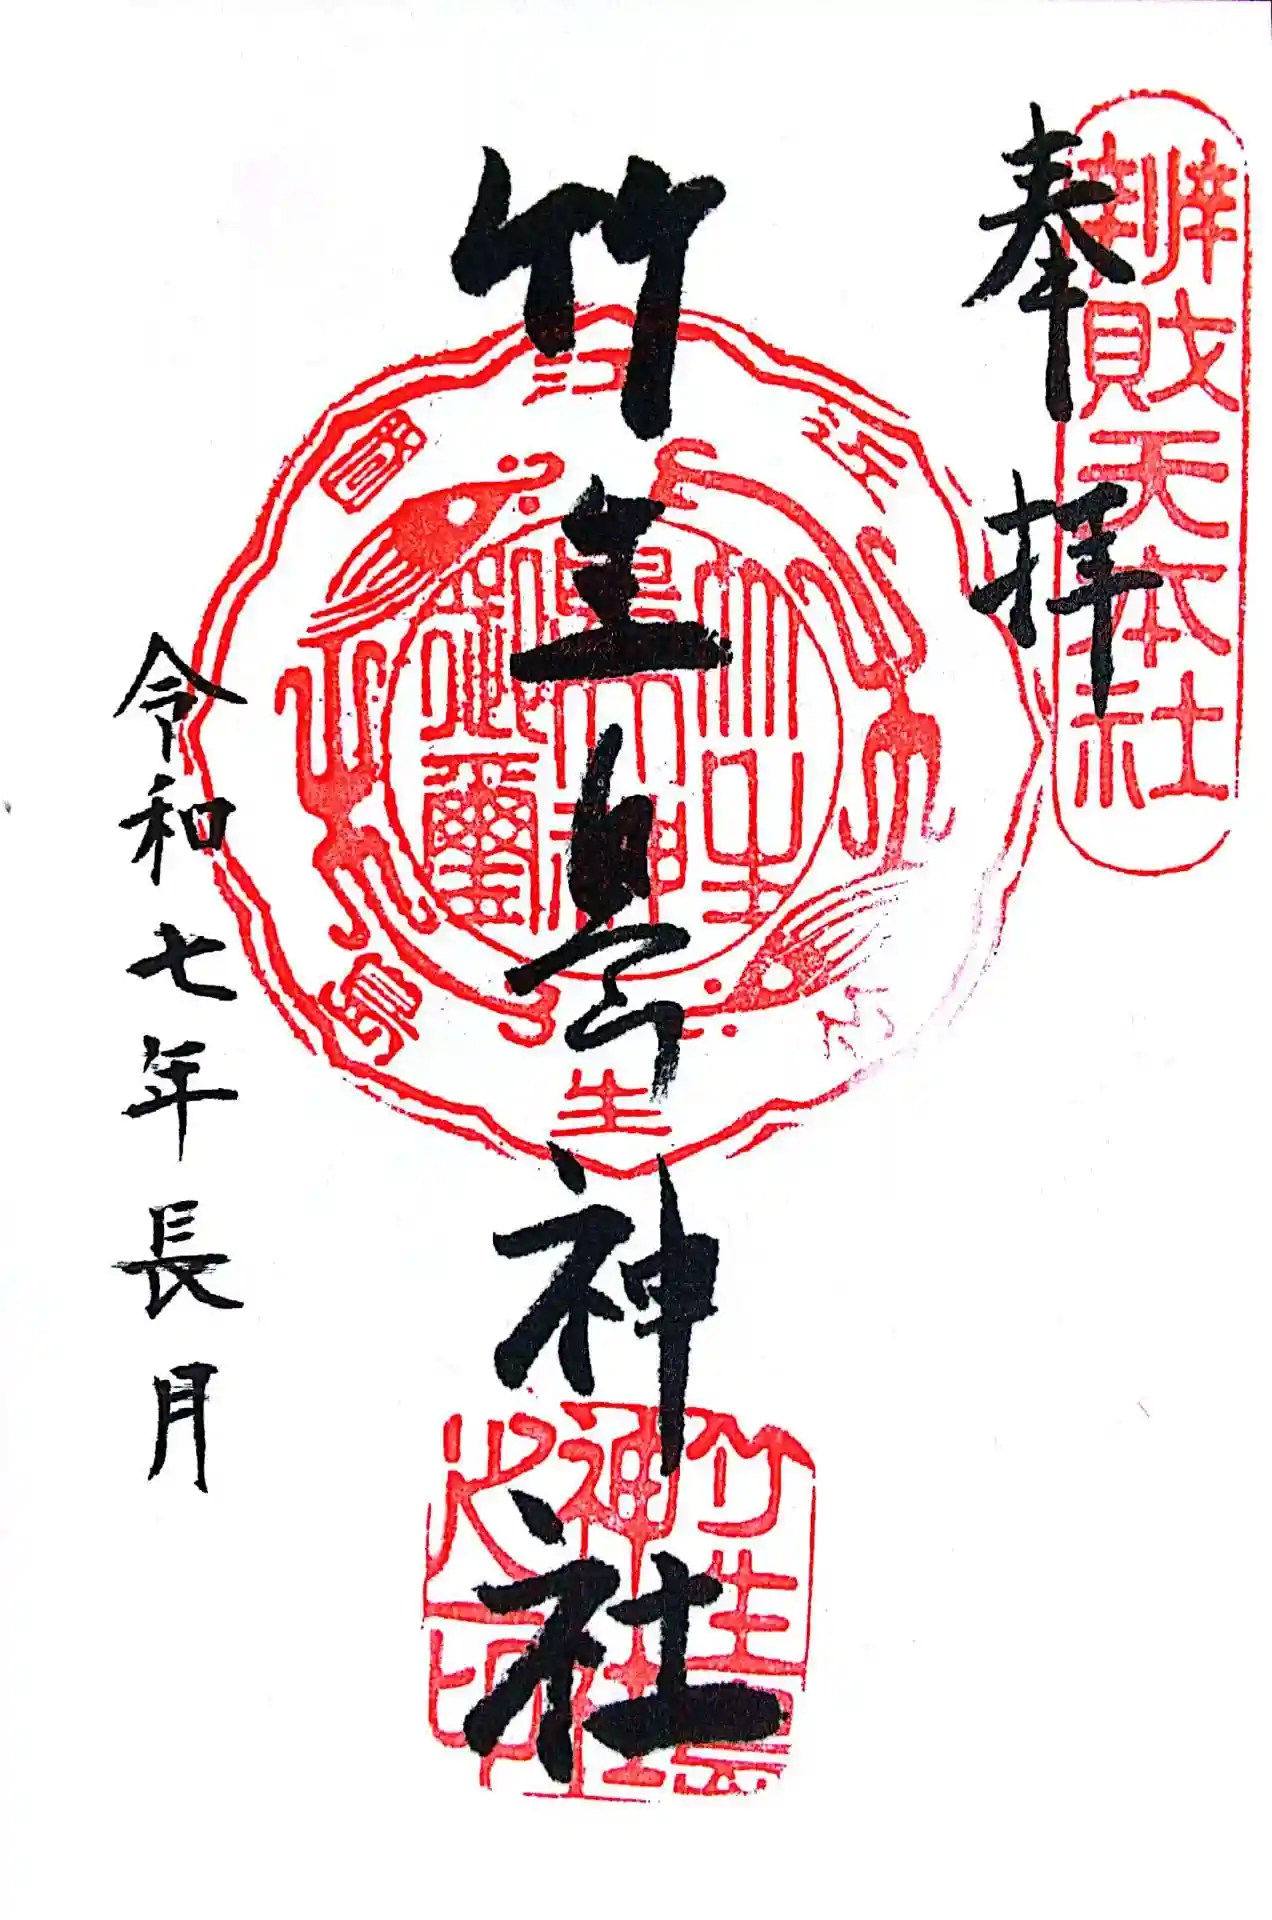 辨財天本社
奉拝
竹生島神社
竹生
御璽
生
竹生島
神社
之印
令和七年長月